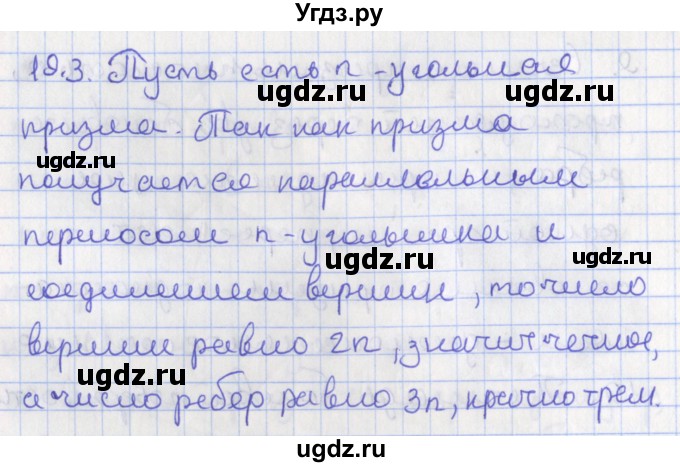 Угдз.ру
19.3. Пусть есть n-угольная
ugdz.ru ugdz.ru
призма. Так как призма
ugdz.ru ugdz.ru
получается параллельным
переносом n-угольника и
ugdz.ru ugdz.ru ugdz.ru
соединением вершин, то число
вершин равно 2n, значит четное,
ugdz.ru ugdz.ru
а число ребер равно 3n, кратно трем.
ugdz.ru